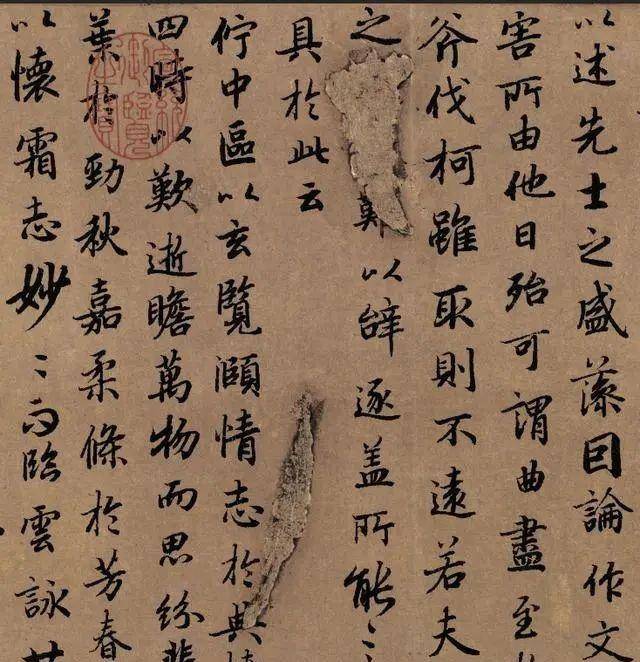 以述先士之盛藻因論作文
害所由他日殆可謂曲盡至
斧伐柯雖取則不遠若夫
之難以辤逐盖所能〻
具於此云
佇中區以玄覽頤情志於典
四時以歎逝瞻萬物而思紛
葉於勁秋嘉柔條於芳春
以懷霜志妙〻而臨雲詠